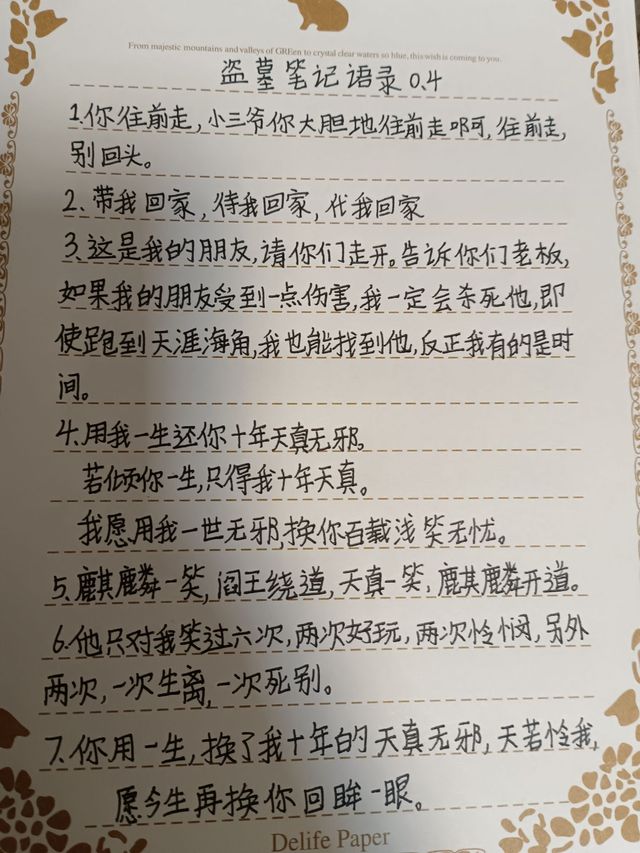 From majestic mountains and valleys of GREen to crystal clear waters so blue, this wish is coming to you.
盗墓笔记语录0.4
1.你往前走,小三爷你大胆地往前走啊,往前走,
别回头。
2、带我回家,待我回家,代我回家
3、这是我的朋友,请你们走开。告诉你们老板,
如果我的朋友受到一点伤害,我一定会杀死他,即
使跑到天涯海角,我也能找到他,反正我有的是时
间。
4.用我一生还你十年天真无邪。
若倾你一生,只得我十年天真。
我愿用我一世无邪,换你百载浅笑无忧。
5.麒麟一笑,阎王绕道,天真一笑,麒麟开道。
6.他只对我笑过六次,两次好玩,两次怜悯,另外
两次,一次生离,一次死别。
7.你用一生,换了我十年的天真无邪,天若怜我,
愿今生再换你回眸一眼。
Delife Paper